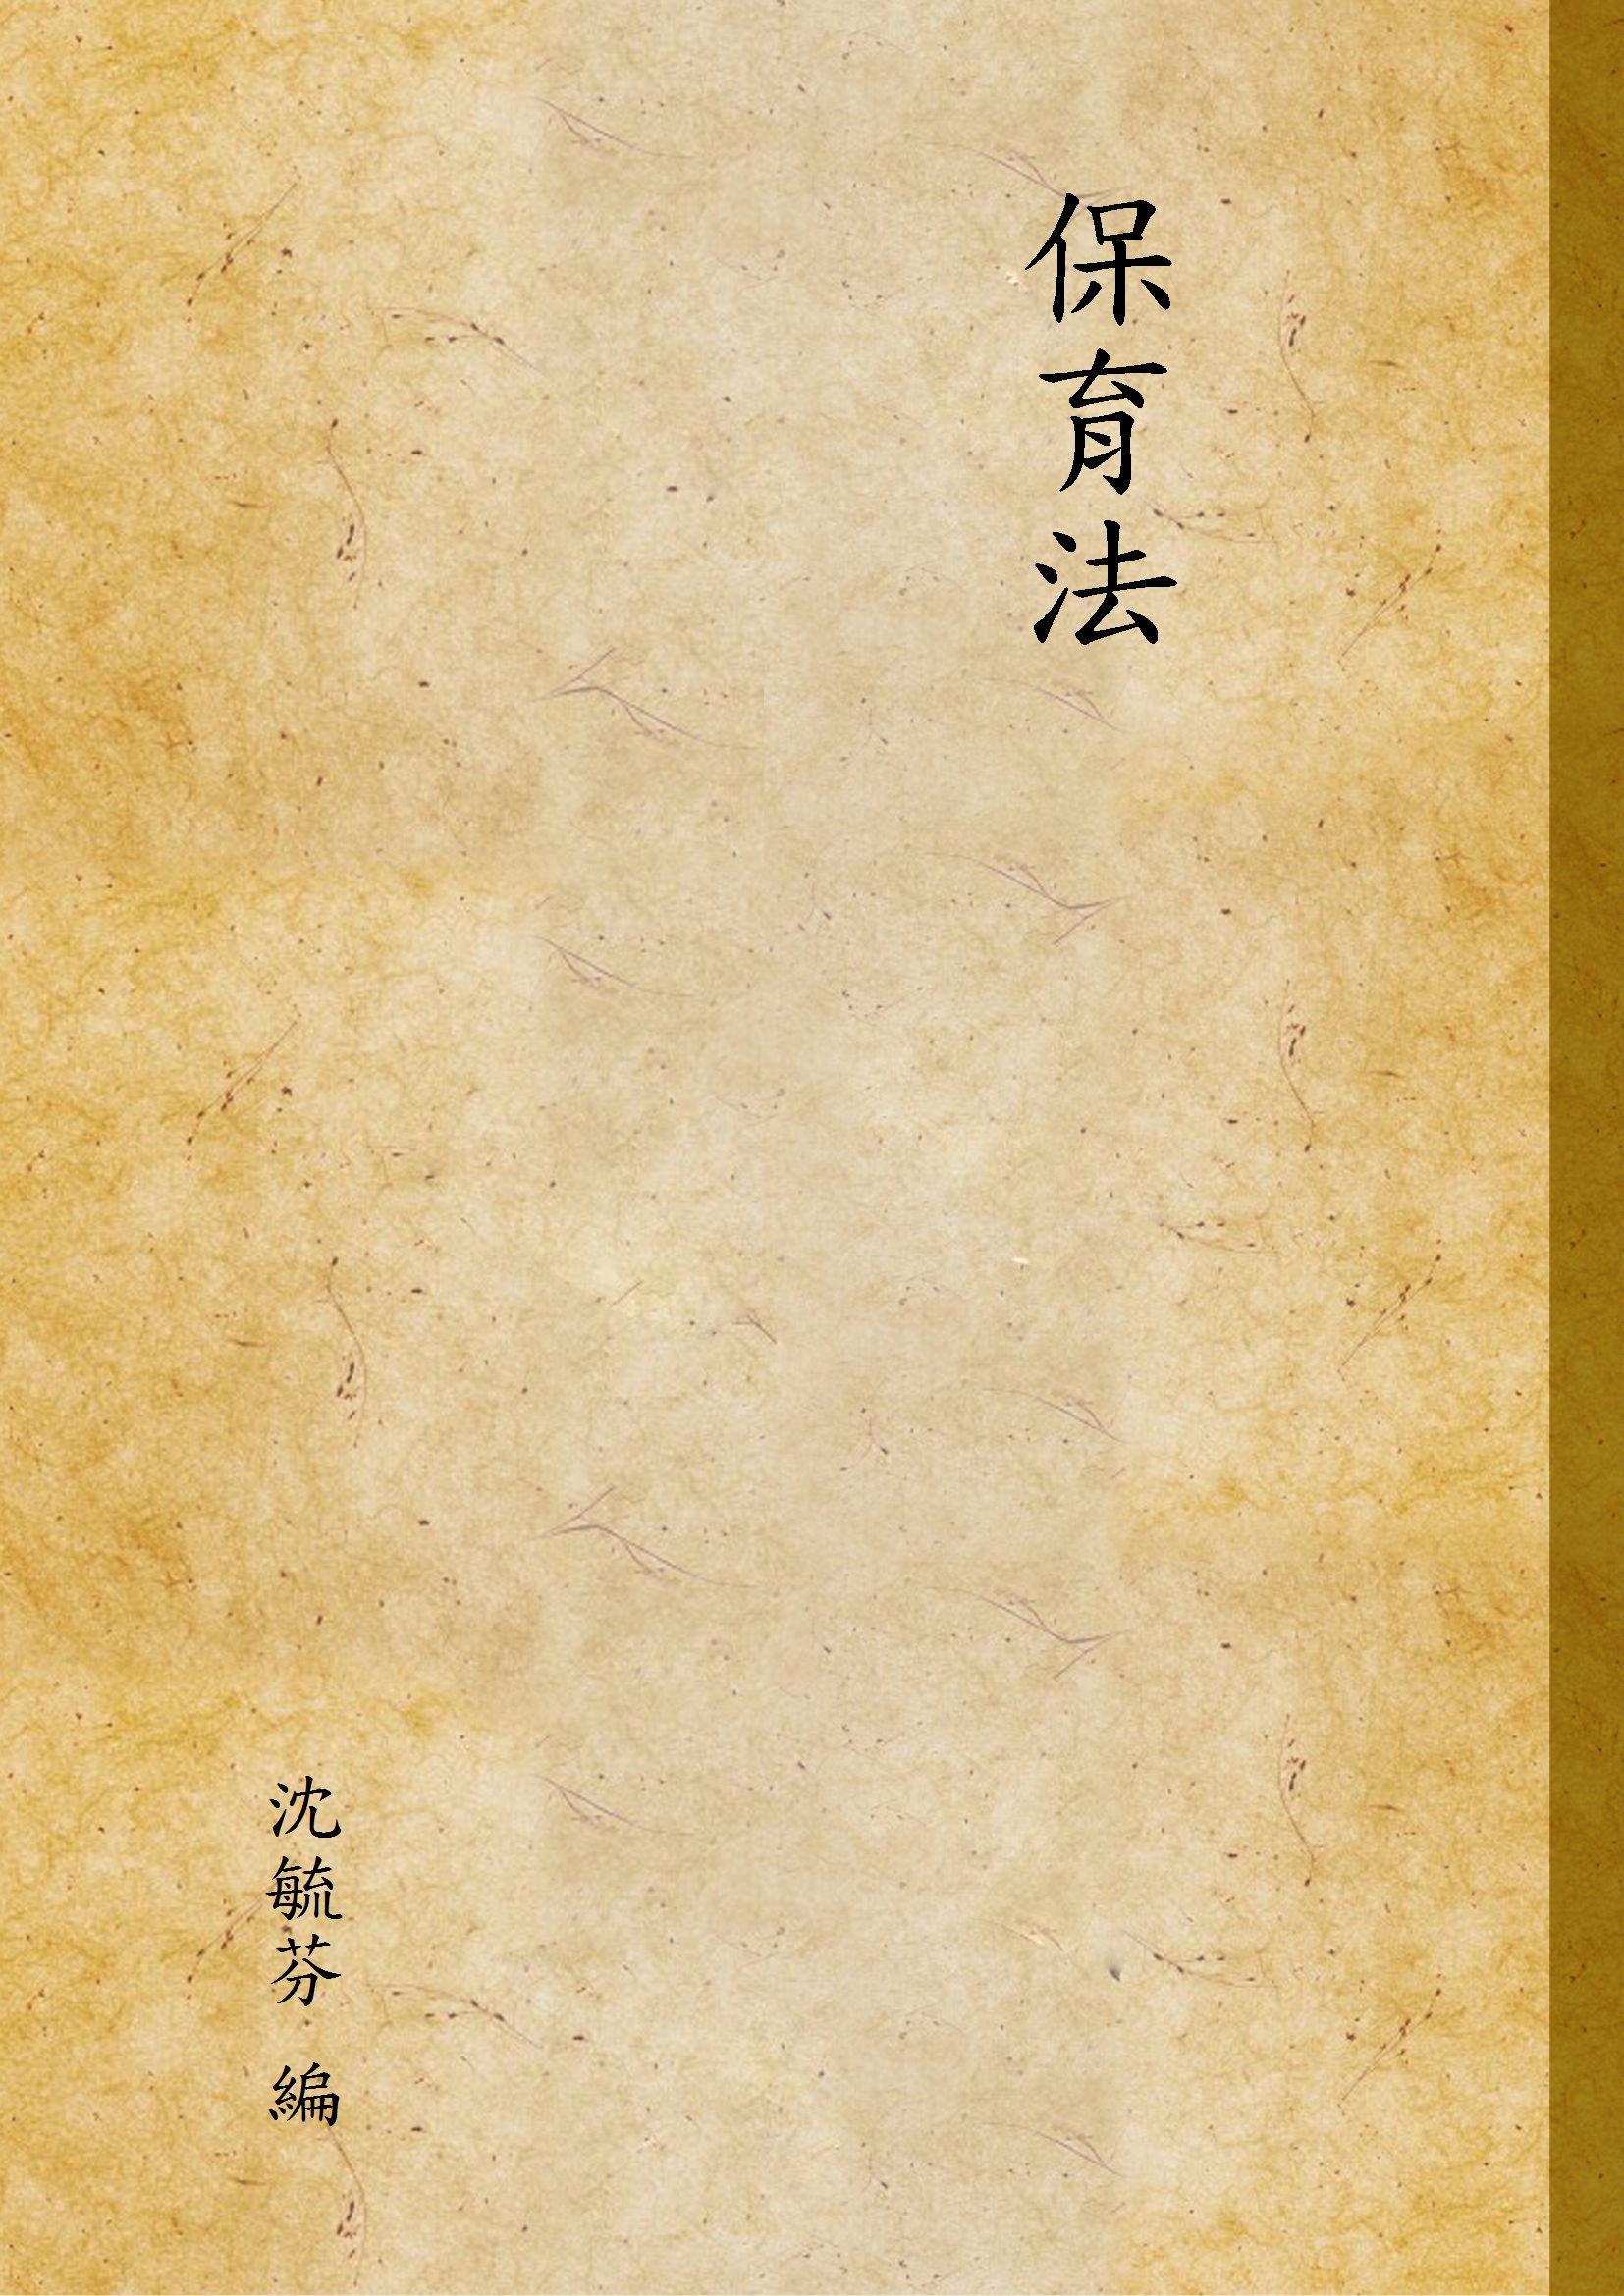 保育法
沈毓芬 編